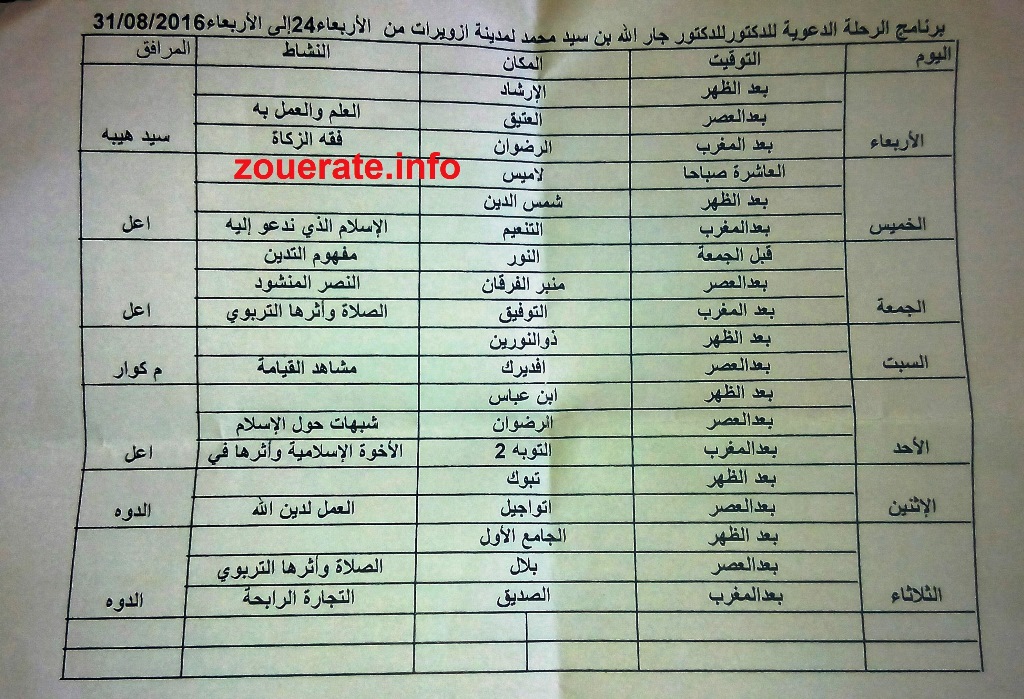 برنامج الرحلة الدعوية للدكتورللدكتور جار الله بن سيد محمد لمدينة ازويرات من الأربعاء24إلى الأربعاء31/08/2016
اليوم التوقيت المكان النشاط المرافق
بعد الظهر الإرشاد
بعدالعصر العتيق العلم والعمل به
الأربعاء بعد المغرب الرضوان فقه الزكاة سيد هيبه
العاشرة صباحا لاميس
zouerate.info
بعد الظهر شمس الدين
الخميس بعدالمغرب التنعيم الإسلام الذي ندعو إليه اعل
قبل الجمعة النور مفهوم التدين
بعدالعصر منبر الفرقان النصر المنشود
الجمعة بعد المغرب التوفيق الصلاة وأثرها التربوي اعل
بعد الظهر ذوالنورين
السبت بعدالعصر افديرك مشاهد القيامة م كوار
بعد الظهر ابن عباس
بعدالعصر الرضوان شبهات حول الإسلام
الأحد بعدالمغرب التوبه 2 الأخوة الإسلامية وأثرها في اعل
بعد الظهر تبوك
الإثنين بعدالعصر اتواجيل العمل لدين الله الدوه
بعد الظهر الجامع الأول
بعدالعصر بلال الصلاة وأثرها التربوي
الثلاثاء بعدالمغرب الصديق التجارة الرابحة الدوه